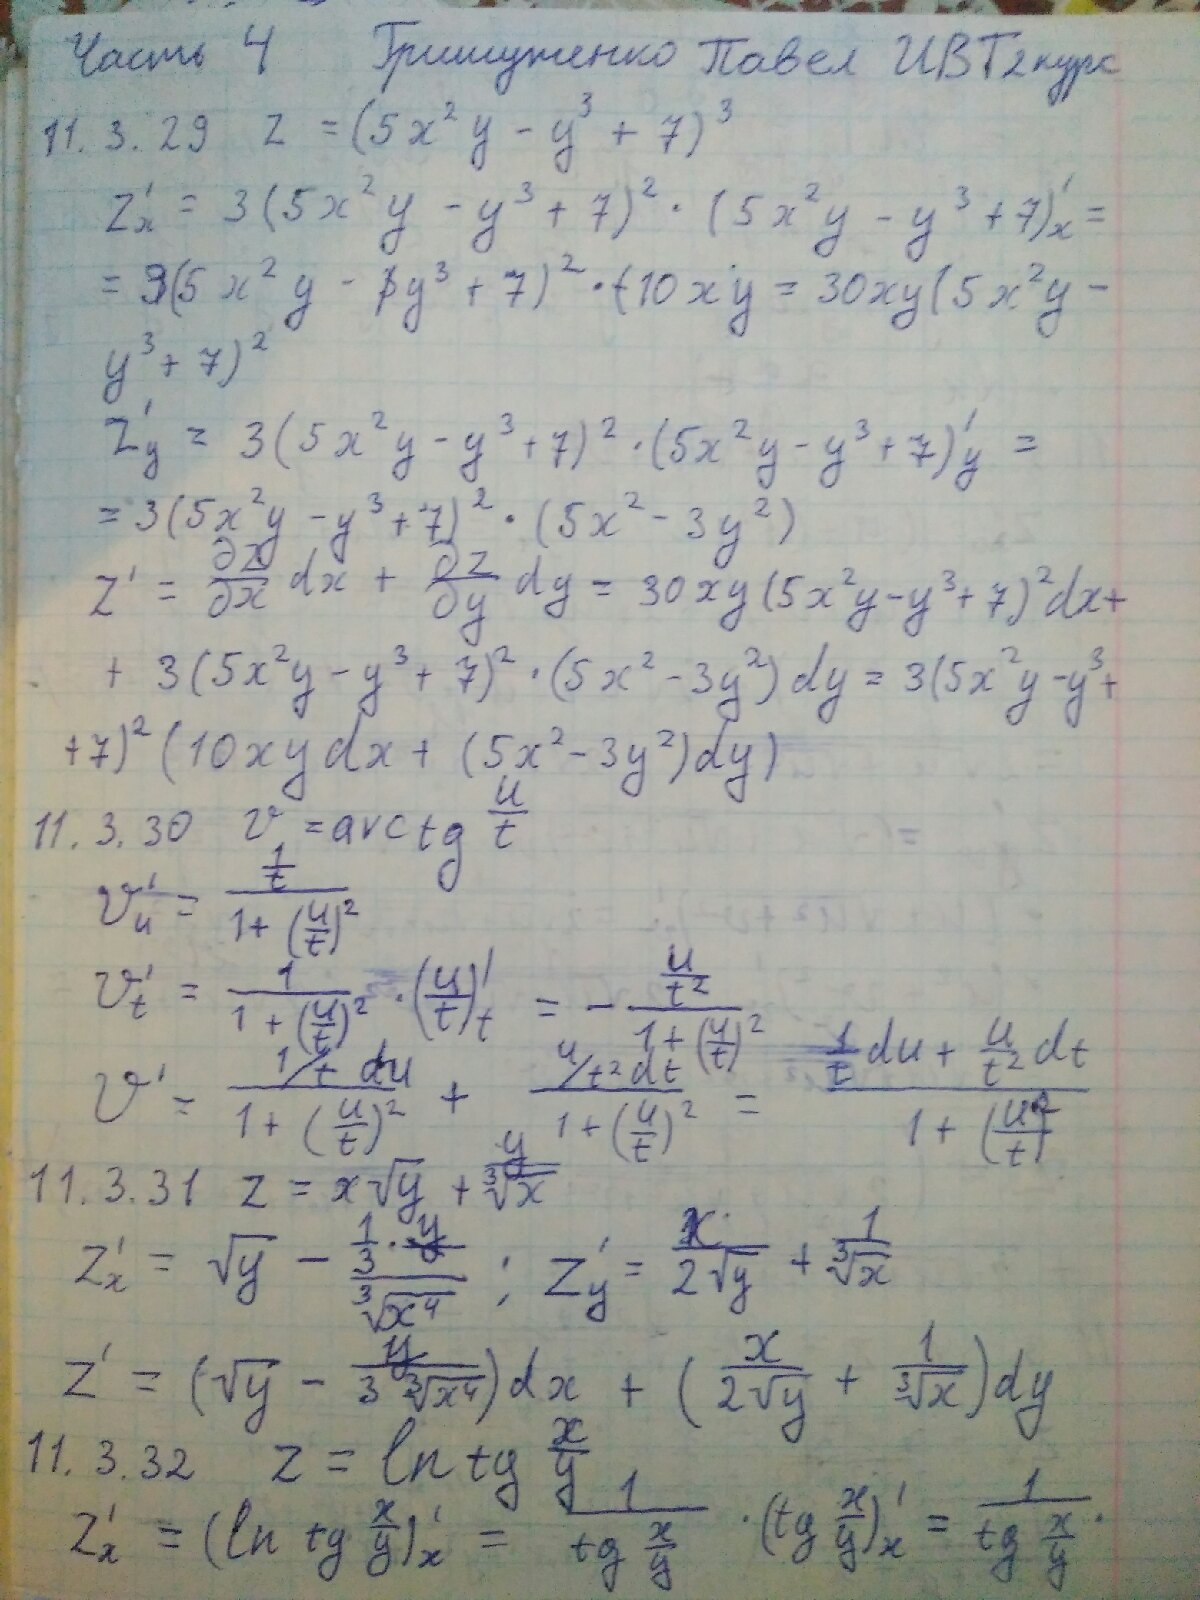 Часть 4 Гришуженко Павел ИВТ 2 курс
11.3.29 z = (5x²y - y³ + 7)³
z'ₓ = 3(5x²y - y³ + 7)² · (5x²y - y³ + 7)'ₓ =
= 3(5x²y - y³ + 7)² · 10xy = 30xy(5x²y -
y³ + 7)²
z'_y = 3(5x²y - y³ + 7)² · (5x²y - y³ + 7)'_y =
= 3(5x²y - y³ + 7)² · (5x² - 3y²)
z' = ∂z/∂x dx + ∂z/∂y dy = 30xy(5x²y - y³ + 7)²dx +
+ 3(5x²y - y³ + 7)² · (5x² - 3y²)dy = 3(5x²y - y³ +
+ 7)² (10xy dx + (5x² - 3y²)dy)
11.3.30 v = arctg u/t
v'_u = (1/t)/(1 + (u/t)²)
v'_t = 1/(1 + (u/t)²) · (u/t)'_t = - (u/t²)/(1 + (u/t)²)
v' = (1/t du)/(1 + (u/t)²) + (u/t² dt)/(1 + (u/t)²) = (1/t du + u/t² dt)/(1 + (u/t)²)
11.3.31 z = x√y + y/∛x
z'ₓ = √y - (1/3 · y)/∛x⁴ ; z'_y = x/(2√y) + 1/∛x
z' = (√y - y/(3∛x⁴))dx + (x/(2√y) + 1/∛x)dy
11.3.32 z = ln tg x/y
z'ₓ = (ln tg x/y)'ₓ = 1/(tg x/y) · (tg x/y)'ₓ = 1/(tg x/y) ·